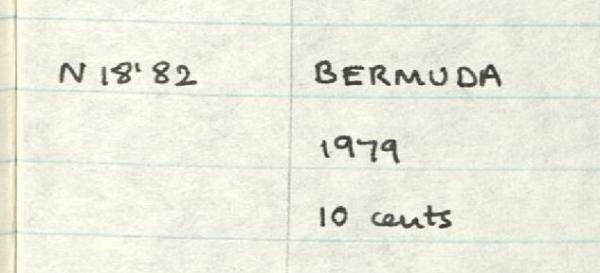 N 18' 82 BERMUDA
1979
10 cents